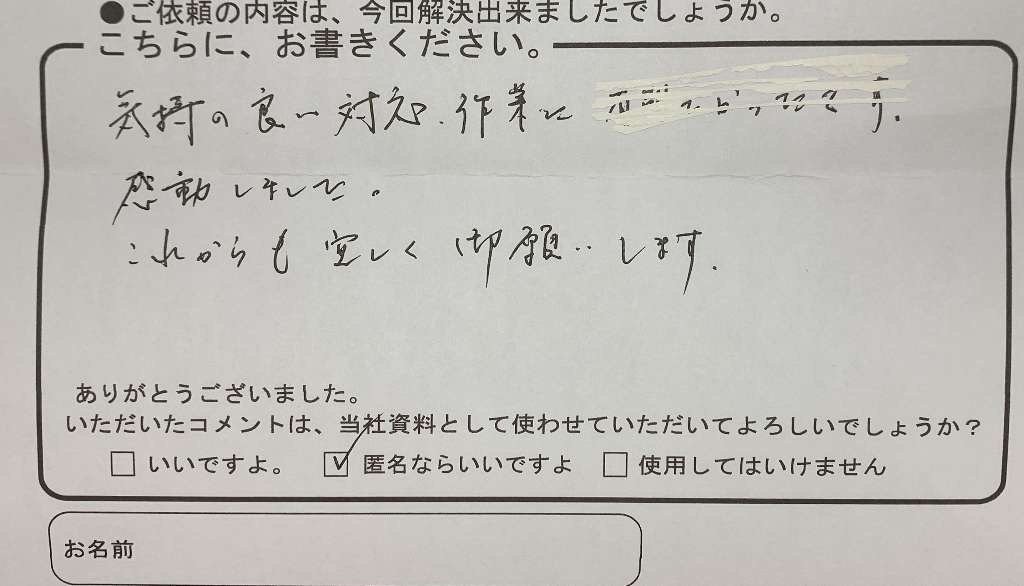 ●ご依頼の内容は、今回解決出来ましたでしょうか。
こちらに、お書きください。
気持の良い対応、作業に
感動しました。
これからも宜しく御願いします。
ありがとうございました。
いただいたコメントは、当社資料として使わせていただいてよろしいでしょうか？
□ いいですよ。 ☑ 匿名ならいいですよ □ 使用してはいけません
お名前